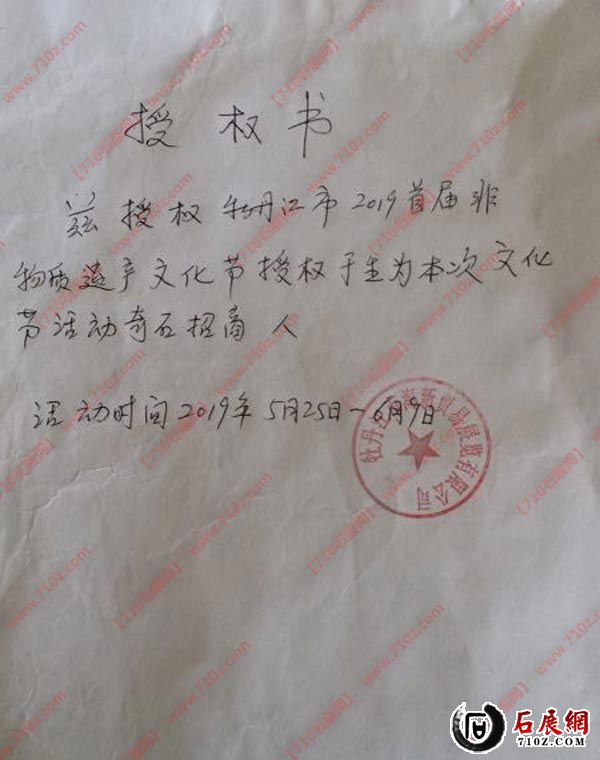 授权书
兹授权牡丹江市2019首届非
物质遗产文化节授权于生为本次文化
节活动奇石招商人
活动时间2019年5月25日~6月9日
牡丹江海新贸易展览有限公司
【710石展网】www.710z.com
石展網
710Z.COM